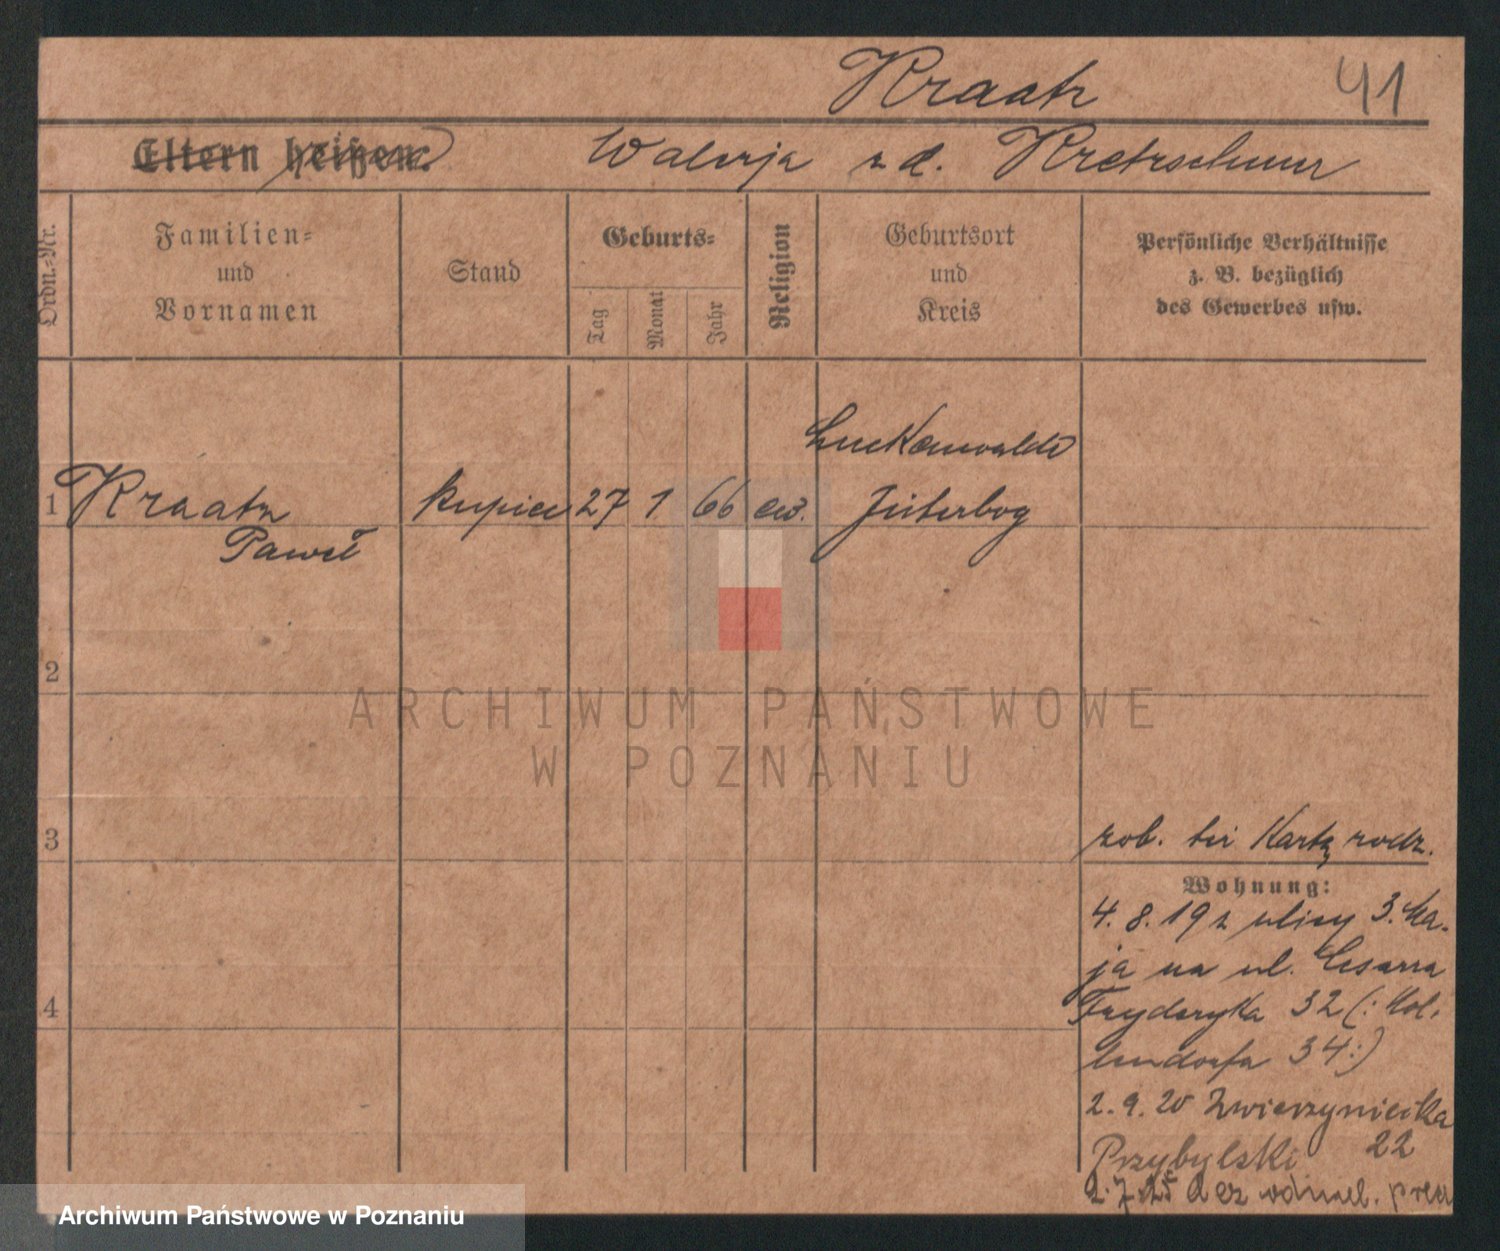 Kraatz 41
Eltern heißen: Waleria z d. Kretzschmer
Ordn.-Nr.
Familien-
und
Vornamen
Stand
Geburts-
Tag
Monat
Jahr
Religion
Geburtsort
und
Kreis
Persönliche Verhältnisse
z. B. bezüglich
des Gewerbes usw.
Luckenwalde
1 Kraatz kupiec 27 1 66 ew. Jüterbog
Paweł
2
ARCHIWUM PAŃSTWOWE
W POZNANIU
3
zob. też Kartę rodz.
Wohnung:
4. 8. 19 z ulicy 3. Ma-
ja na ul. Cesarza
4
Fryderyka 32 (: Hol-
lendorfa 34 :)
2. 9. 20 Zwierzyniecka
22
Przybylski
2. 7. 25 bez odmel.
Archiwum Państwowe w Poznaniu